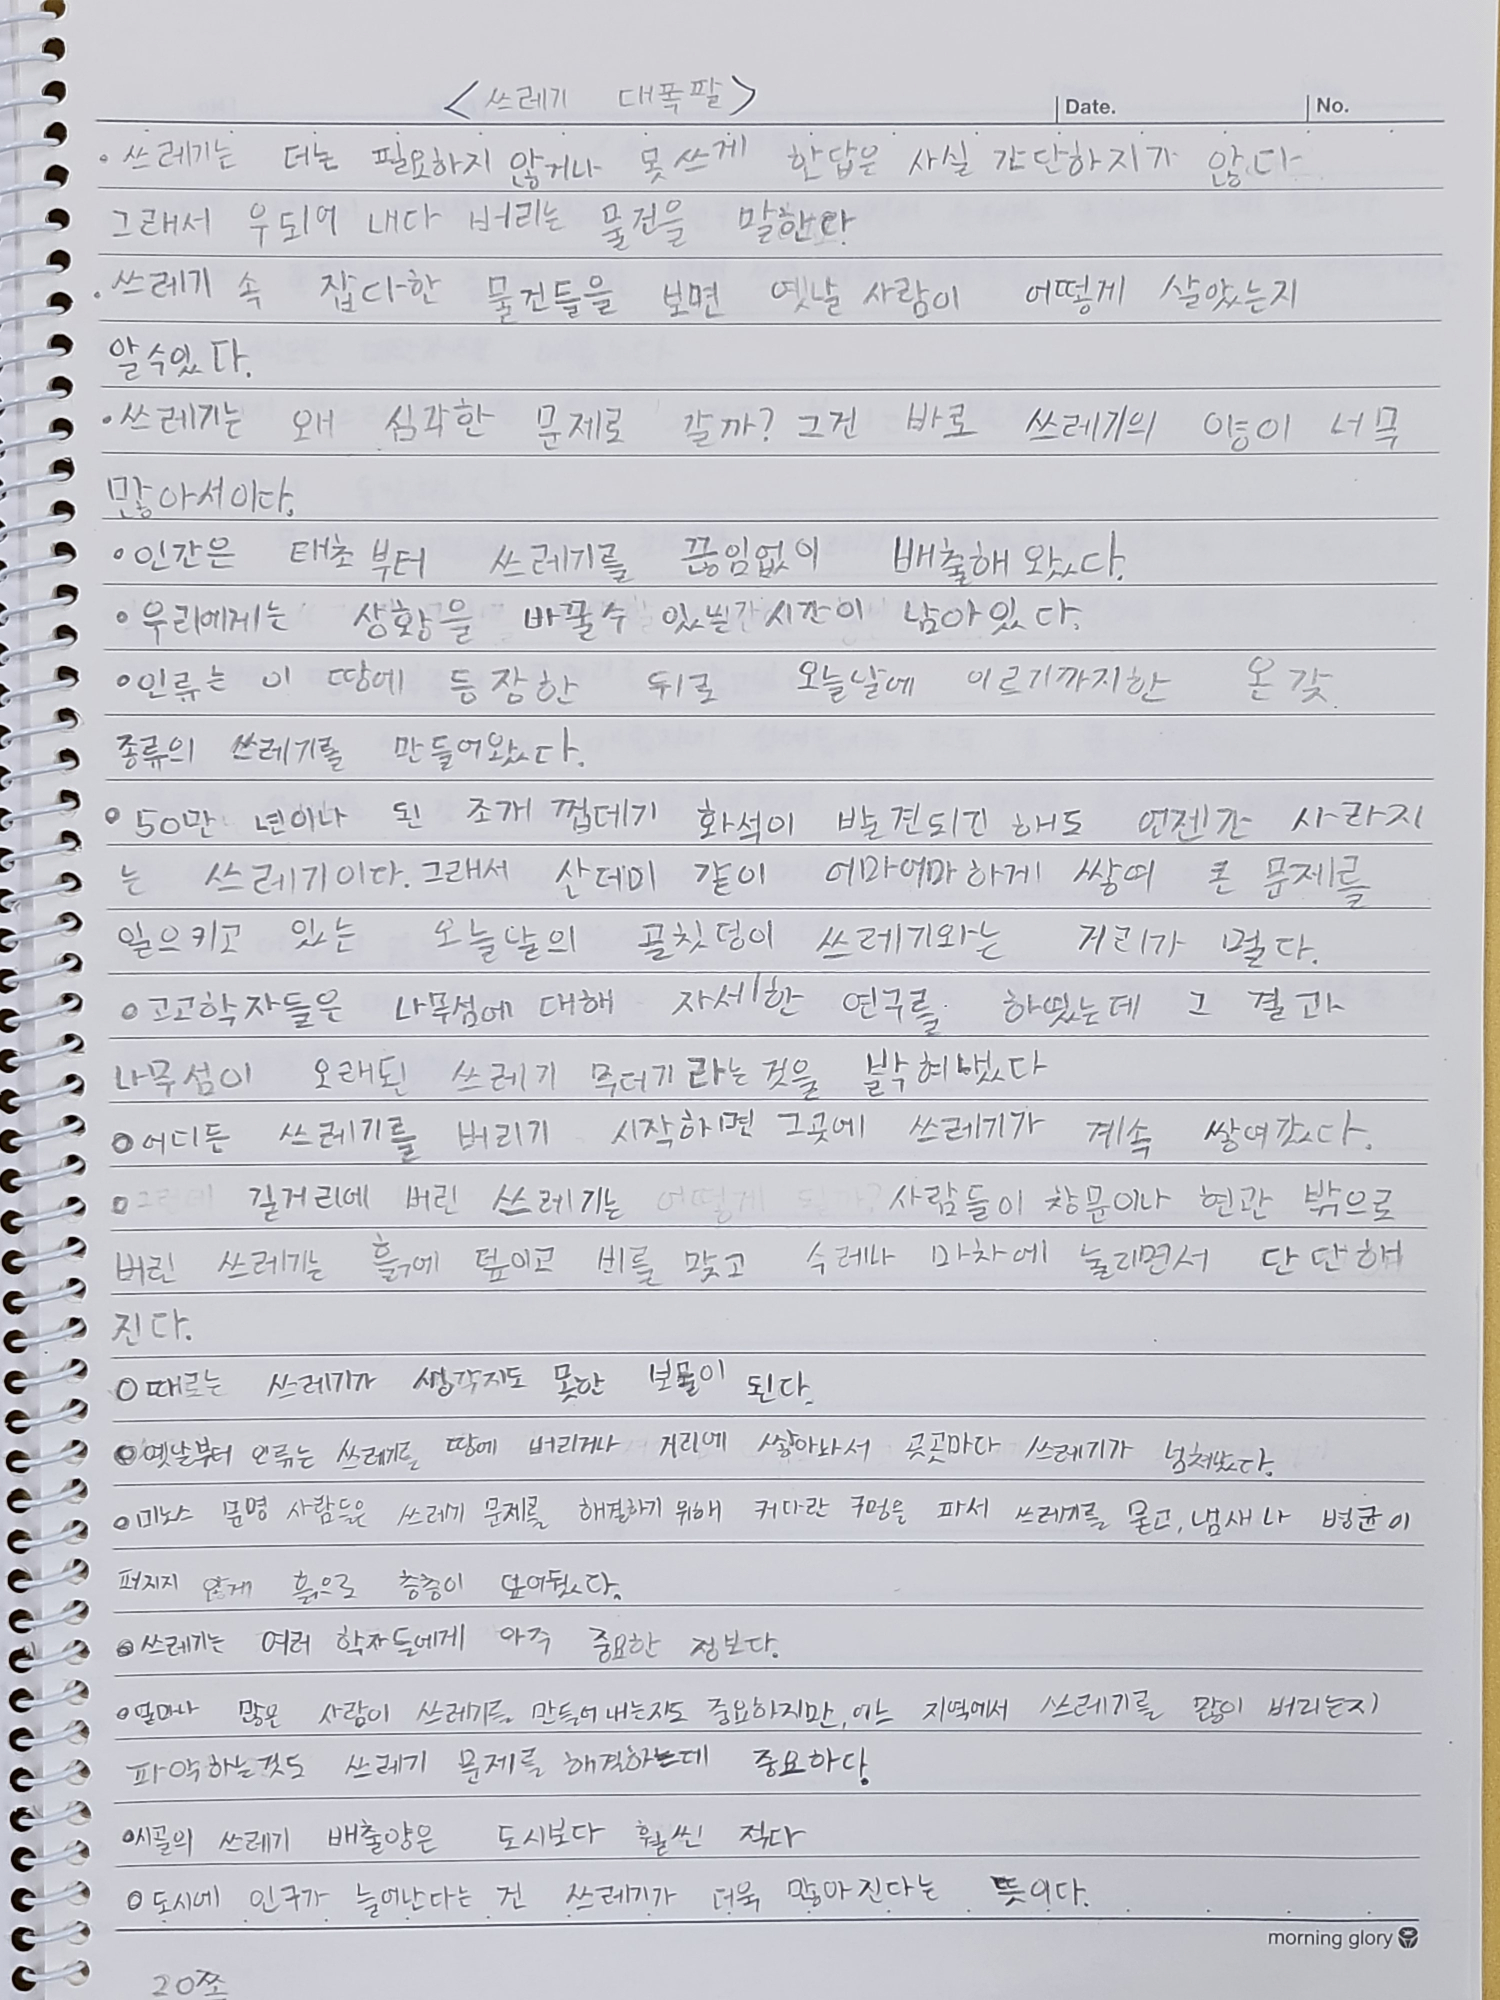 <쓰레기 대폭팔>
Date. No.
• 쓰레기는 더는 필요하지 않거나 못쓰게 한답은 사실 간단하지가 않다
그래서 우되어 내다 버리는 물건을 말한다.
• 쓰레기 속 잡다한 물건들을 보면 옛날 사람이 어떻게 살았는지
알수있다.
• 쓰레기는 왜 심각한 문제로 갈까? 그건 바로 쓰레기의 양이 너무
많아서이다.
• 인간은 태초부터 쓰레기를 끊임없이 배출해왔다.
• 우리에게는 상황을 바꿀수 있는 시간이 남아있다.
• 인류는 이 땅에 등장한 뒤로 오늘날에 이르기까지한 온갖
종류의 쓰레기를 만들어왔다.
• 50만 년이나 된 조개 껍데기 화석이 발견되긴 해도 언젠간 사라지
는 쓰레기이다. 그래서 산데미 같이 어마어마하게 쌓여 큰 문제를
일으키고 있는 오늘날의 골칫덩이 쓰레기와는 거리가 멀다.
• 고고학자들은 나무섬에 대해 자세한 연구를 하였는데 그 결과
나무섬이 오래된 쓰레기 무더기라는 것을 밝혀냈다
• 어디든 쓰레기를 버리기 시작하면 그곳에 쓰레기가 계속 쌓여갔다.
• 그런데 길거리에 버린 쓰레기는 어떻게 될까? 사람들이 창문이나 현관 밖으로
버린 쓰레기는 흙에 덮이고 비를 맞고 수레나 마차에 눌리면서 단단해
진다.
• 때로는 쓰레기가 생각지도 못한 보물이 된다.
• 옛날부터 인류는 쓰레기를 땅에 버리거나 거리에 쌓아놔서 곳곳마다 쓰레기가 넘쳐났다.
• 미노스 문명 사람들은 쓰레기 문제를 해결하기 위해 커다란 구멍을 파서 쓰레기를 묻고, 냄새나 병균이
퍼지지 않게 흙으로 층층이 덮어뒀다.
• 쓰레기는 여러 학자들에게 아주 중요한 정보다.
• 얼마나 많은 사람이 쓰레기를 만들어 내는지도 중요하지만, 어느 지역에서 쓰레기를 많이 버리는지
파악하는것도 쓰레기 문제를 해결하는데 중요하다.
• 시골의 쓰레기 배출양은 도시보다 훨씬 적다
• 도시에 인구가 늘어난다는 건 쓰레기가 더욱 많아진다는 뜻이다.
morning glory
20쪽